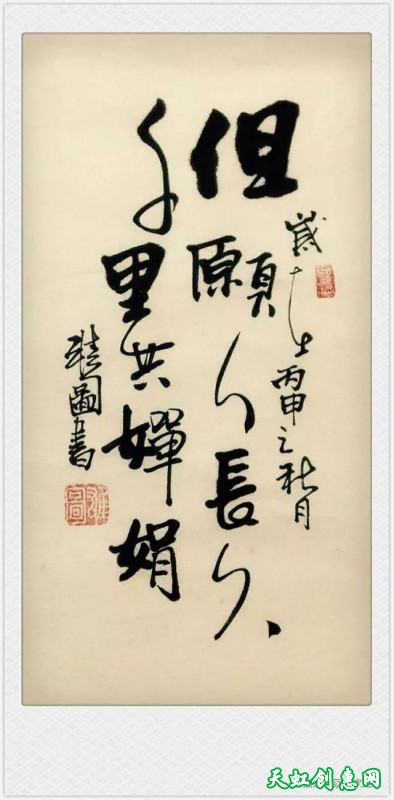 歲在丙申之秋月
但願人長久
千里共嬋娟
圖書
天虹创意网